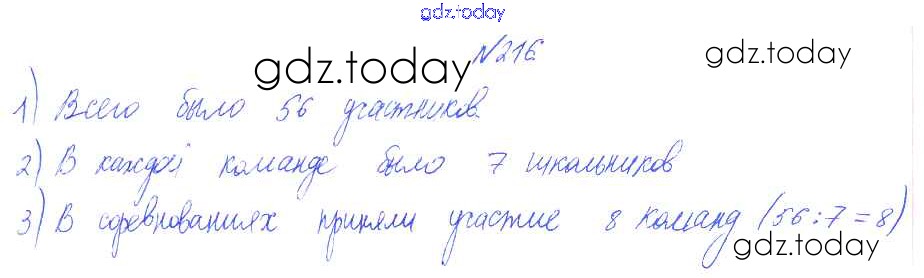 gdz.today
№216
gdz.today
gdz.today
1) Всего было 56 участников.
2) В каждой команде было 7 школьников
3) В соревнованиях приняли участие 8 команд (56:7=8)
gdz.today